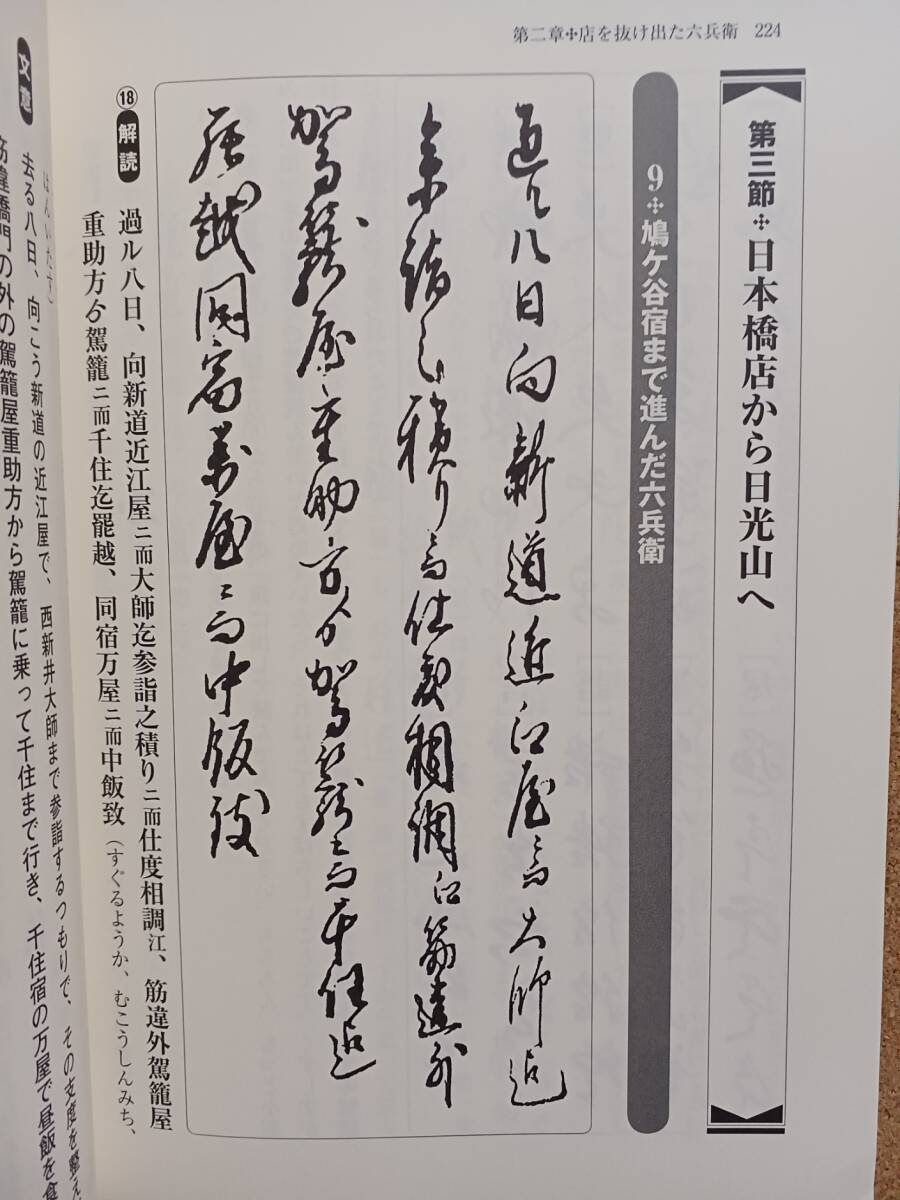 第二章✣店を抜け出た六兵衛　224
第三節✣日本橋店から日光山へ
9✣鳩ケ谷宿まで進んだ六兵衛
過ル八日向新道近江屋ニ而大師迄
参詣之積りニ而仕度相調江筋違外
駕籠屋重助方ゟ駕籠ニ而千住迄
罷越同宿万屋ニ而中飯致
⑱解読　過ル八日、向新道近江屋ニ而大師迄参詣之積りニ而仕度相調江、筋違外駕籠屋
重助方ゟ駕籠ニ而千住迄罷越、同宿万屋ニ而中飯致（すぐるようか、むこうしんみち、
はんいたす）
文意　去る八日、向こう新道の近江屋で、西新井大師まで参詣するつもりで、その支度を整え
筋違橋門の外の駕籠屋重助方から駕籠に乗って千住まで行き、千住宿の万屋で昼飯を食